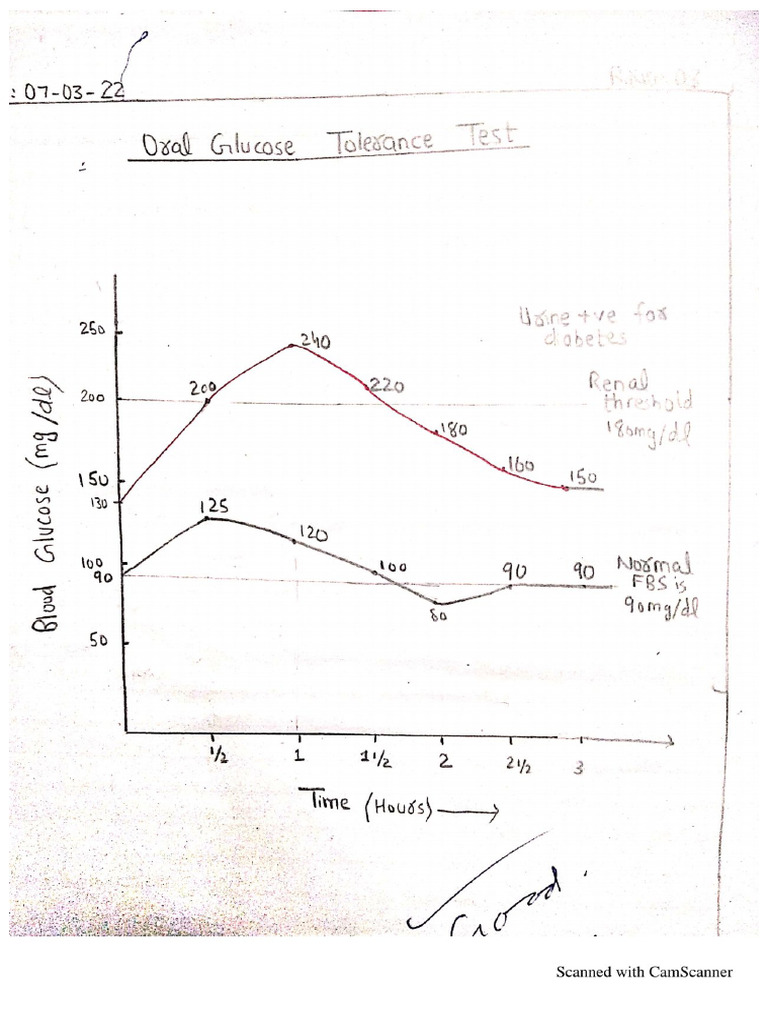 : 07-03-22
Oral Glucose Tolerance Test
Urine +ve for
diabetes
Renal
threshold
180mg/dl
Blood Glucose (mg/dl)
250
200
150
130
100
90
50
200
240
220
180
160
150
125
120
100
80
90
90
Normal
FBS is
90mg/dl
1/2
1
1 1/2
2
2 1/2
3
Time (Hours)
Good
Scanned with CamScanner